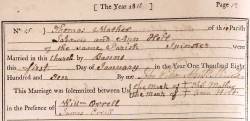 [The Year 1810.] Page
No 15 } Thomas Mather of this Parish
Labourer and Ann Holt
of the same Parish Spinster were
Married in this Church by Banns
this first Day of January in the Year One Thousand Eight
Hundred and Ten By me
This Marriage was solemnized between Us { the mark of
the mark of
in the Presence of { Willm Borrell
James